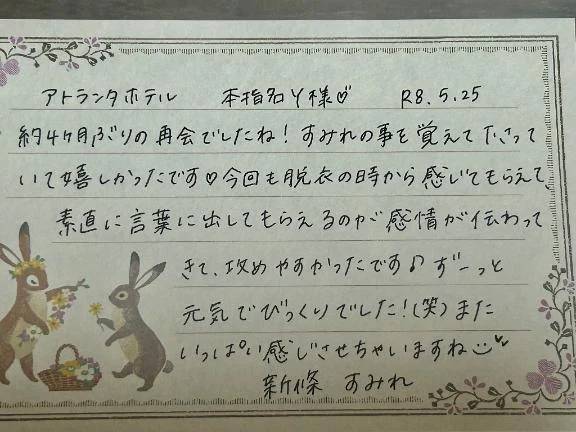 アトランタホテル 本指名Y様♡ R8.5.25
約4ヶ月ぶりの再会でしたね！すみれの事を覚えて下さって
いて嬉しかったです♡今回も脱衣の時から感じてもらえて、
素直に言葉に出してもらえるのが感情が伝わって
きて、攻めやすかったです♪ずーっと
元気でびっくりでした！(笑)また
いっぱい感じさせちゃいますね
新條 すみれ